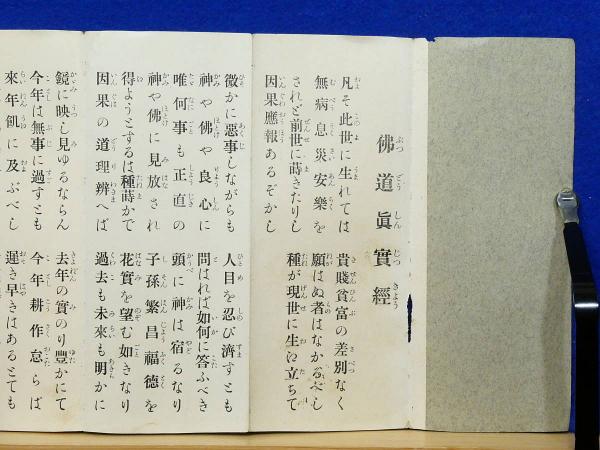 佛道眞實經
凡そ此世に生れては 貴賤貧富の差別なく
無病息災安樂を 願はぬ者はなかるべし
されど前世に蒔きたりし 種が現世に生い立ちて
因果應報あるぞかし
微かに惡事しながらも 人目を忍び濟すとも
神や佛や良心に 問はれば如何に答ふべき
唯何事も正直の 頭に神は宿るなり
神や佛に見放され 子孫繁昌福德を
得ようとするは種蒔かで 花實を望む如きなり
因果の道理辨へば 過去も未來も明かに
鏡に映し見ゆるならん 去年の實のり豊かにて
今年は無事に過すとも 今年耕作怠らば
來年飢に及ぶべし 遲き早きはあるとても